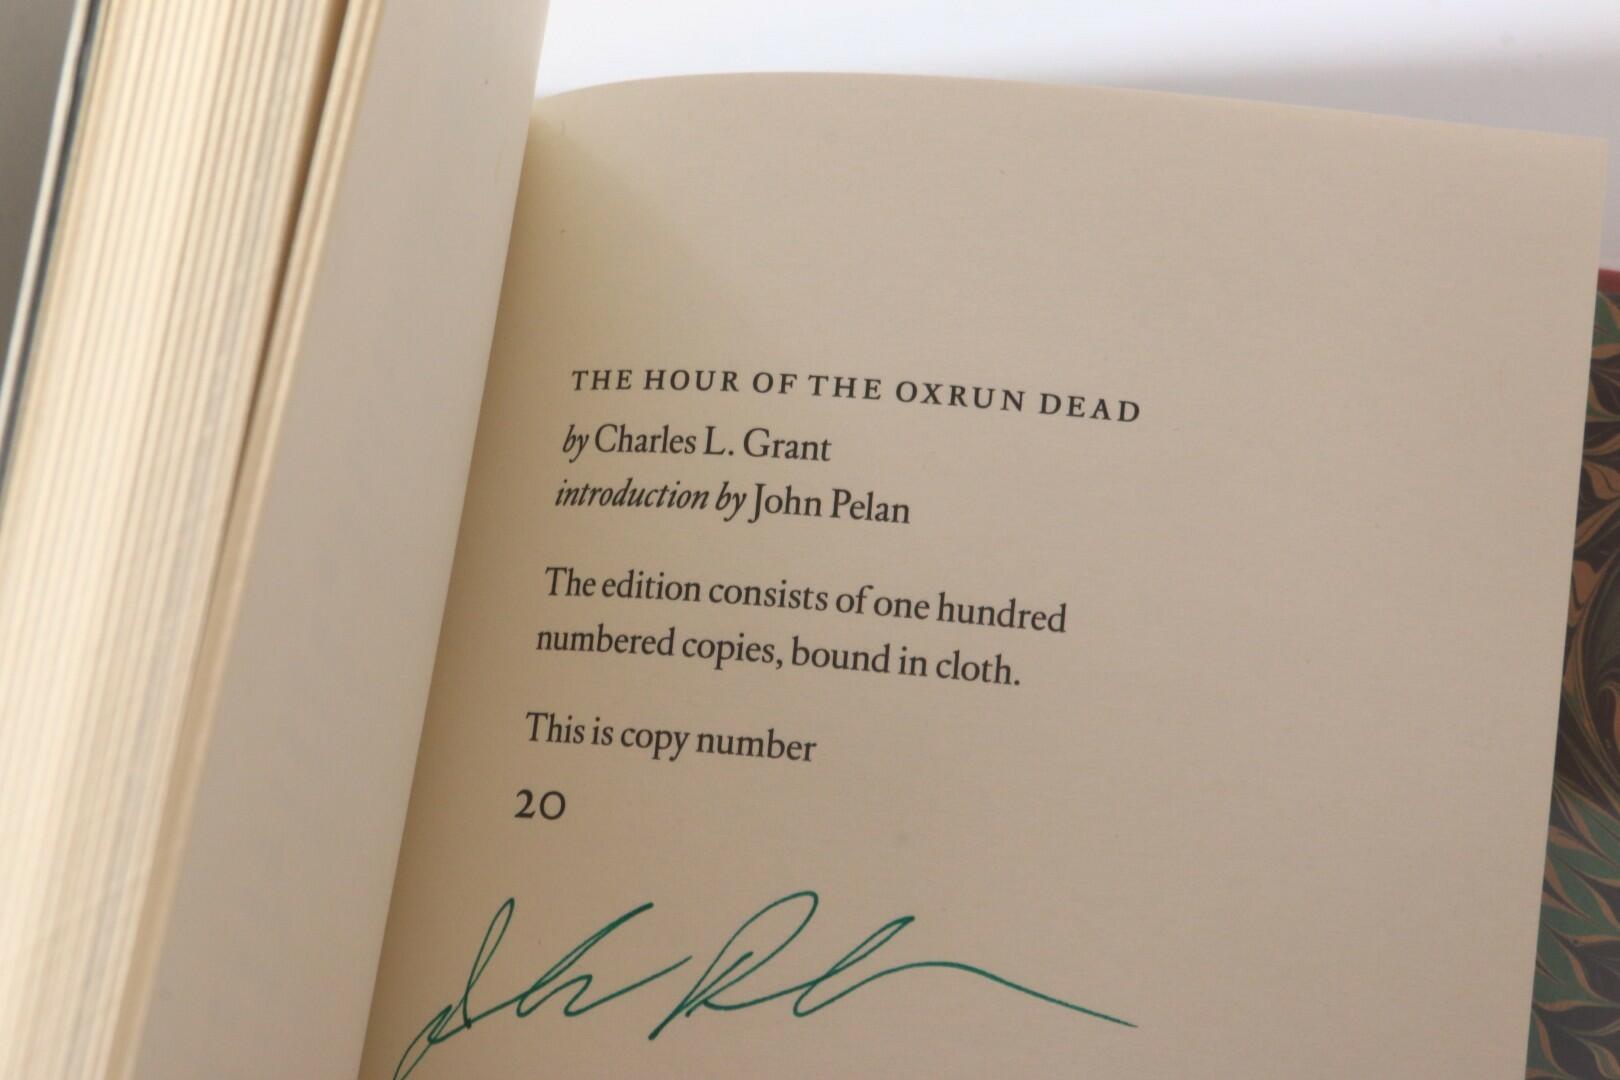 THE HOUR OF THE OXRUN DEAD
by Charles L. Grant
introduction by John Pelan
The edition consists of one hundred
numbered copies, bound in cloth.
This is copy number
20